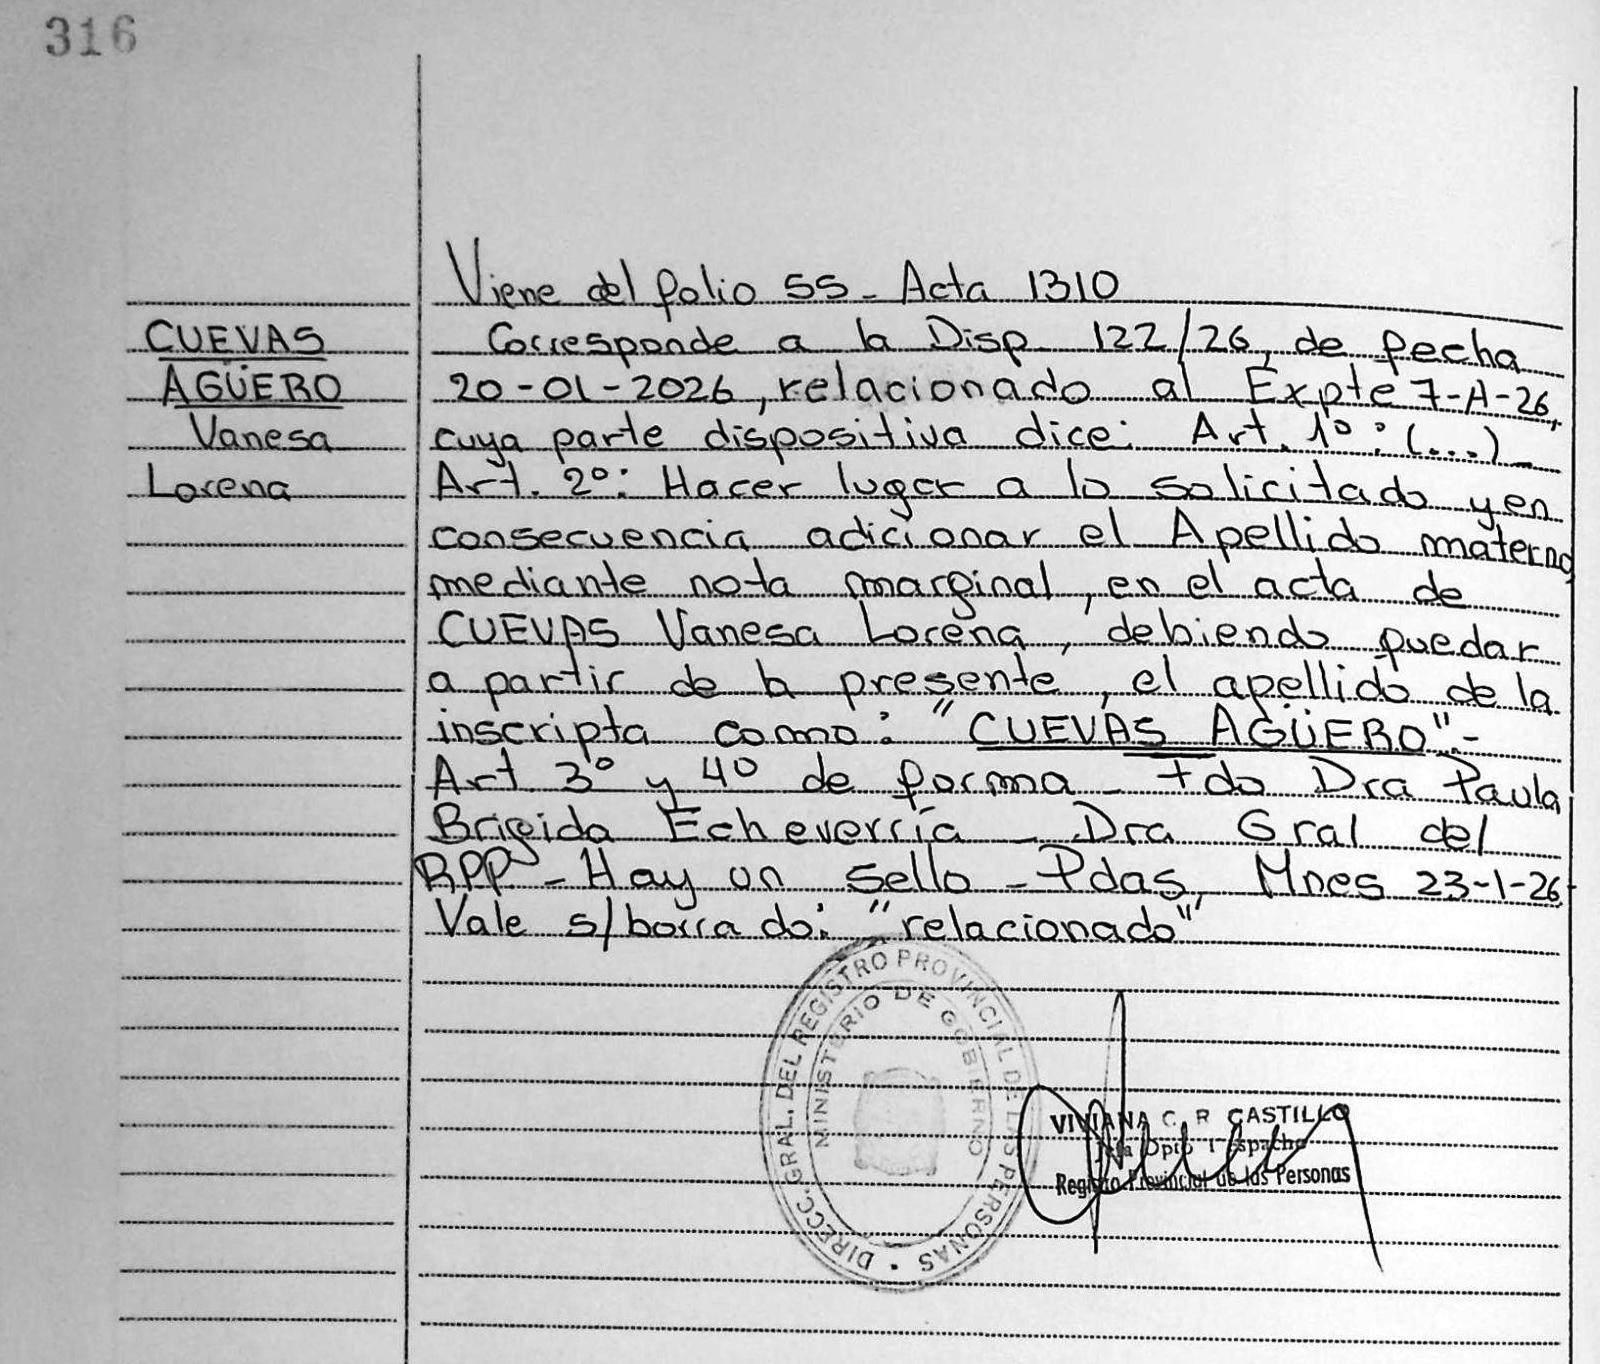 316
Viene del folio 55 - Acta 1310
CUEVAS
AGÜERO
Vanesa
Lorena
Corresponde a la Disp 122/26, de fecha
20-01-2026, relacionado al Expte 7-A-26,
cuya parte dispositiva dice: Art. 1º: (...) -
Art. 2º: Hacer lugar a lo solicitado y en
consecuencia adicionar el Apellido materno
mediante nota marginal, en el acta de
CUEVAS Vanesa Lorena, debiendo quedar
a partir de la presente, el apellido de la
inscripta como: "CUEVAS AGÜERO".-
Art 3º y 4º de forma - Fdo Dra Paula
Brigida Echeverría - Dra Gral del
RPP - Hay un sello - Pdas, Mnes 23-1-26-
Vale s/borrado: "relacionado"
DIRECC. GRAL. DEL REGISTRO PROVINCIAL DE LAS PERSONAS
MINISTERIO DE GOBIERNO
VIVIANA C. R. CASTILLO
Dpto
Registro Provincial de las Personas